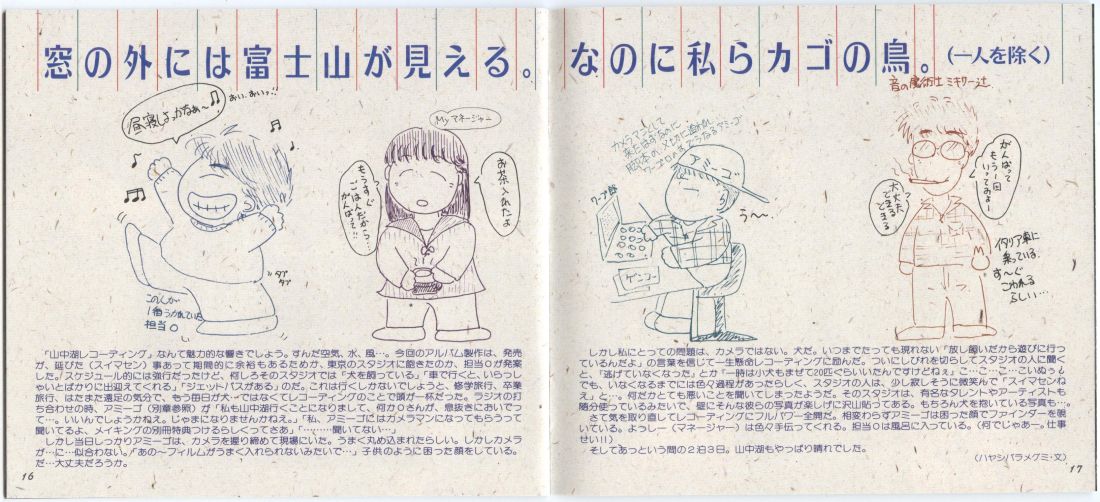 窓の外には富士山が見える。なのに私らカゴの鳥。(一人を除く)
昼寝しよっかなぁ〜♫
おい、おいッ!!
タプ
タプ
このしか
1番うかれていた
担当〇
Myマネージャー
もうすぐ
ごはんだから…
がんばって!!
お茶入れたよ
カメラマンとして
来たはずなのに
ワープ郎
ゲンコー
アミゴ
う〜〜
音の魔術士 ミキサー辻
がんばって
もう一回
いってみよー
大丈夫
できる
できる
イタリア車に
乗っている
す〜ぐ
こわれる
らしい…
「山中湖レコーディング」なんて魅力的な響きでしょう。すんだ空気、水、風…。今回のアルバム製作は、発売
が、延びた(スイマセン)事あって期間的に余裕もあるためか、東京のスタジオに飽きたのか、担当〇が発案
した。「スケジュール的には強行だったけど、何しろそのスタジオでは「犬を飼っている」「車で行くと、いらっし
ゃいとばかりに出迎えてくれる」「ジェットバスがある」のだ。これは行くしかないでしょうと、修学旅行、卒業
旅行、はたまた遠足の気分で、もう毎日が犬…ではなくてレコーディングのことで頭が一杯だった。ラジオの打
ち合わせの時、アミーゴ(別章参照)が「私も山中湖行くことになりまして、何か〇さんが、息抜きにおいでっ
て…。いいんでしょうかねえ。じゃまになりませんかねえ。」「私、アミーゴにはカメラマンになってもらうって
聞いてるよ、メイキングの別冊特典つけるらしくってさあ」「………聞いてない…。」
しかし当日しっかりアミーゴは、カメラを握り締めて現場にいた。うまく丸め込まれたらしい。しかしカメラ
が…に…似合わない。「あの〜フィルムがうまく入れられないみたいで…」子供のように困った顔をしている。
だ…大丈夫だろうか。
16
しかし私にとっての問題は、カメラではない。犬だ。いつまでたっても現れない「放し飼いだから遊びに行っ
ているんだよ」の言葉を信じて一生懸命レコーディングに励んだ。ついにしびれを切らしてスタジオの人に聞く
と、「逃げていなくなった」とか「一時は小犬もまぜて20匹ぐらいいたんですけどねぇ」こ…こ…こ…こいぬぅ
でも、いなくなるまでには色々過程があったらしく、スタジオの人は、少し寂しそうに微笑んで「スイマセンね
え」と…。何だかとても悪いことを聞いてしまったようだ。そのスタジオは、有名なタレントやアーティストも
随分使っているみたいで、壁にそんな彼らの写真が楽しげに沢山貼ってある。もちろん犬を抱いている写真も…。
さて気を取り直してレコーディングにフルパワー全開だ。相変わらずアミーゴは困った顔でファインダーを覗
いている。よっしー(マネージャー)は色々手伝ってくれる。担当〇は風呂に入っている。(何でじゃあー。仕事
せい!!)
そしてあっという間の2泊3日。山中湖もやっぱり晴れでした。
(ハヤシバラメグミ・文)
17